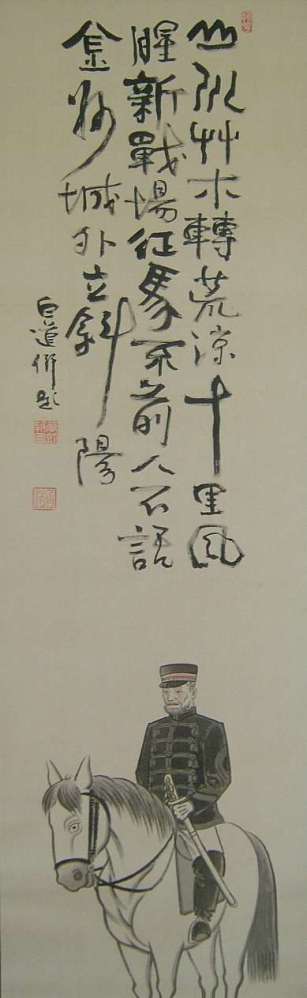 山川艸木轉荒涼十里風
腥新戰場征馬不前人不語
金州城外立斜陽